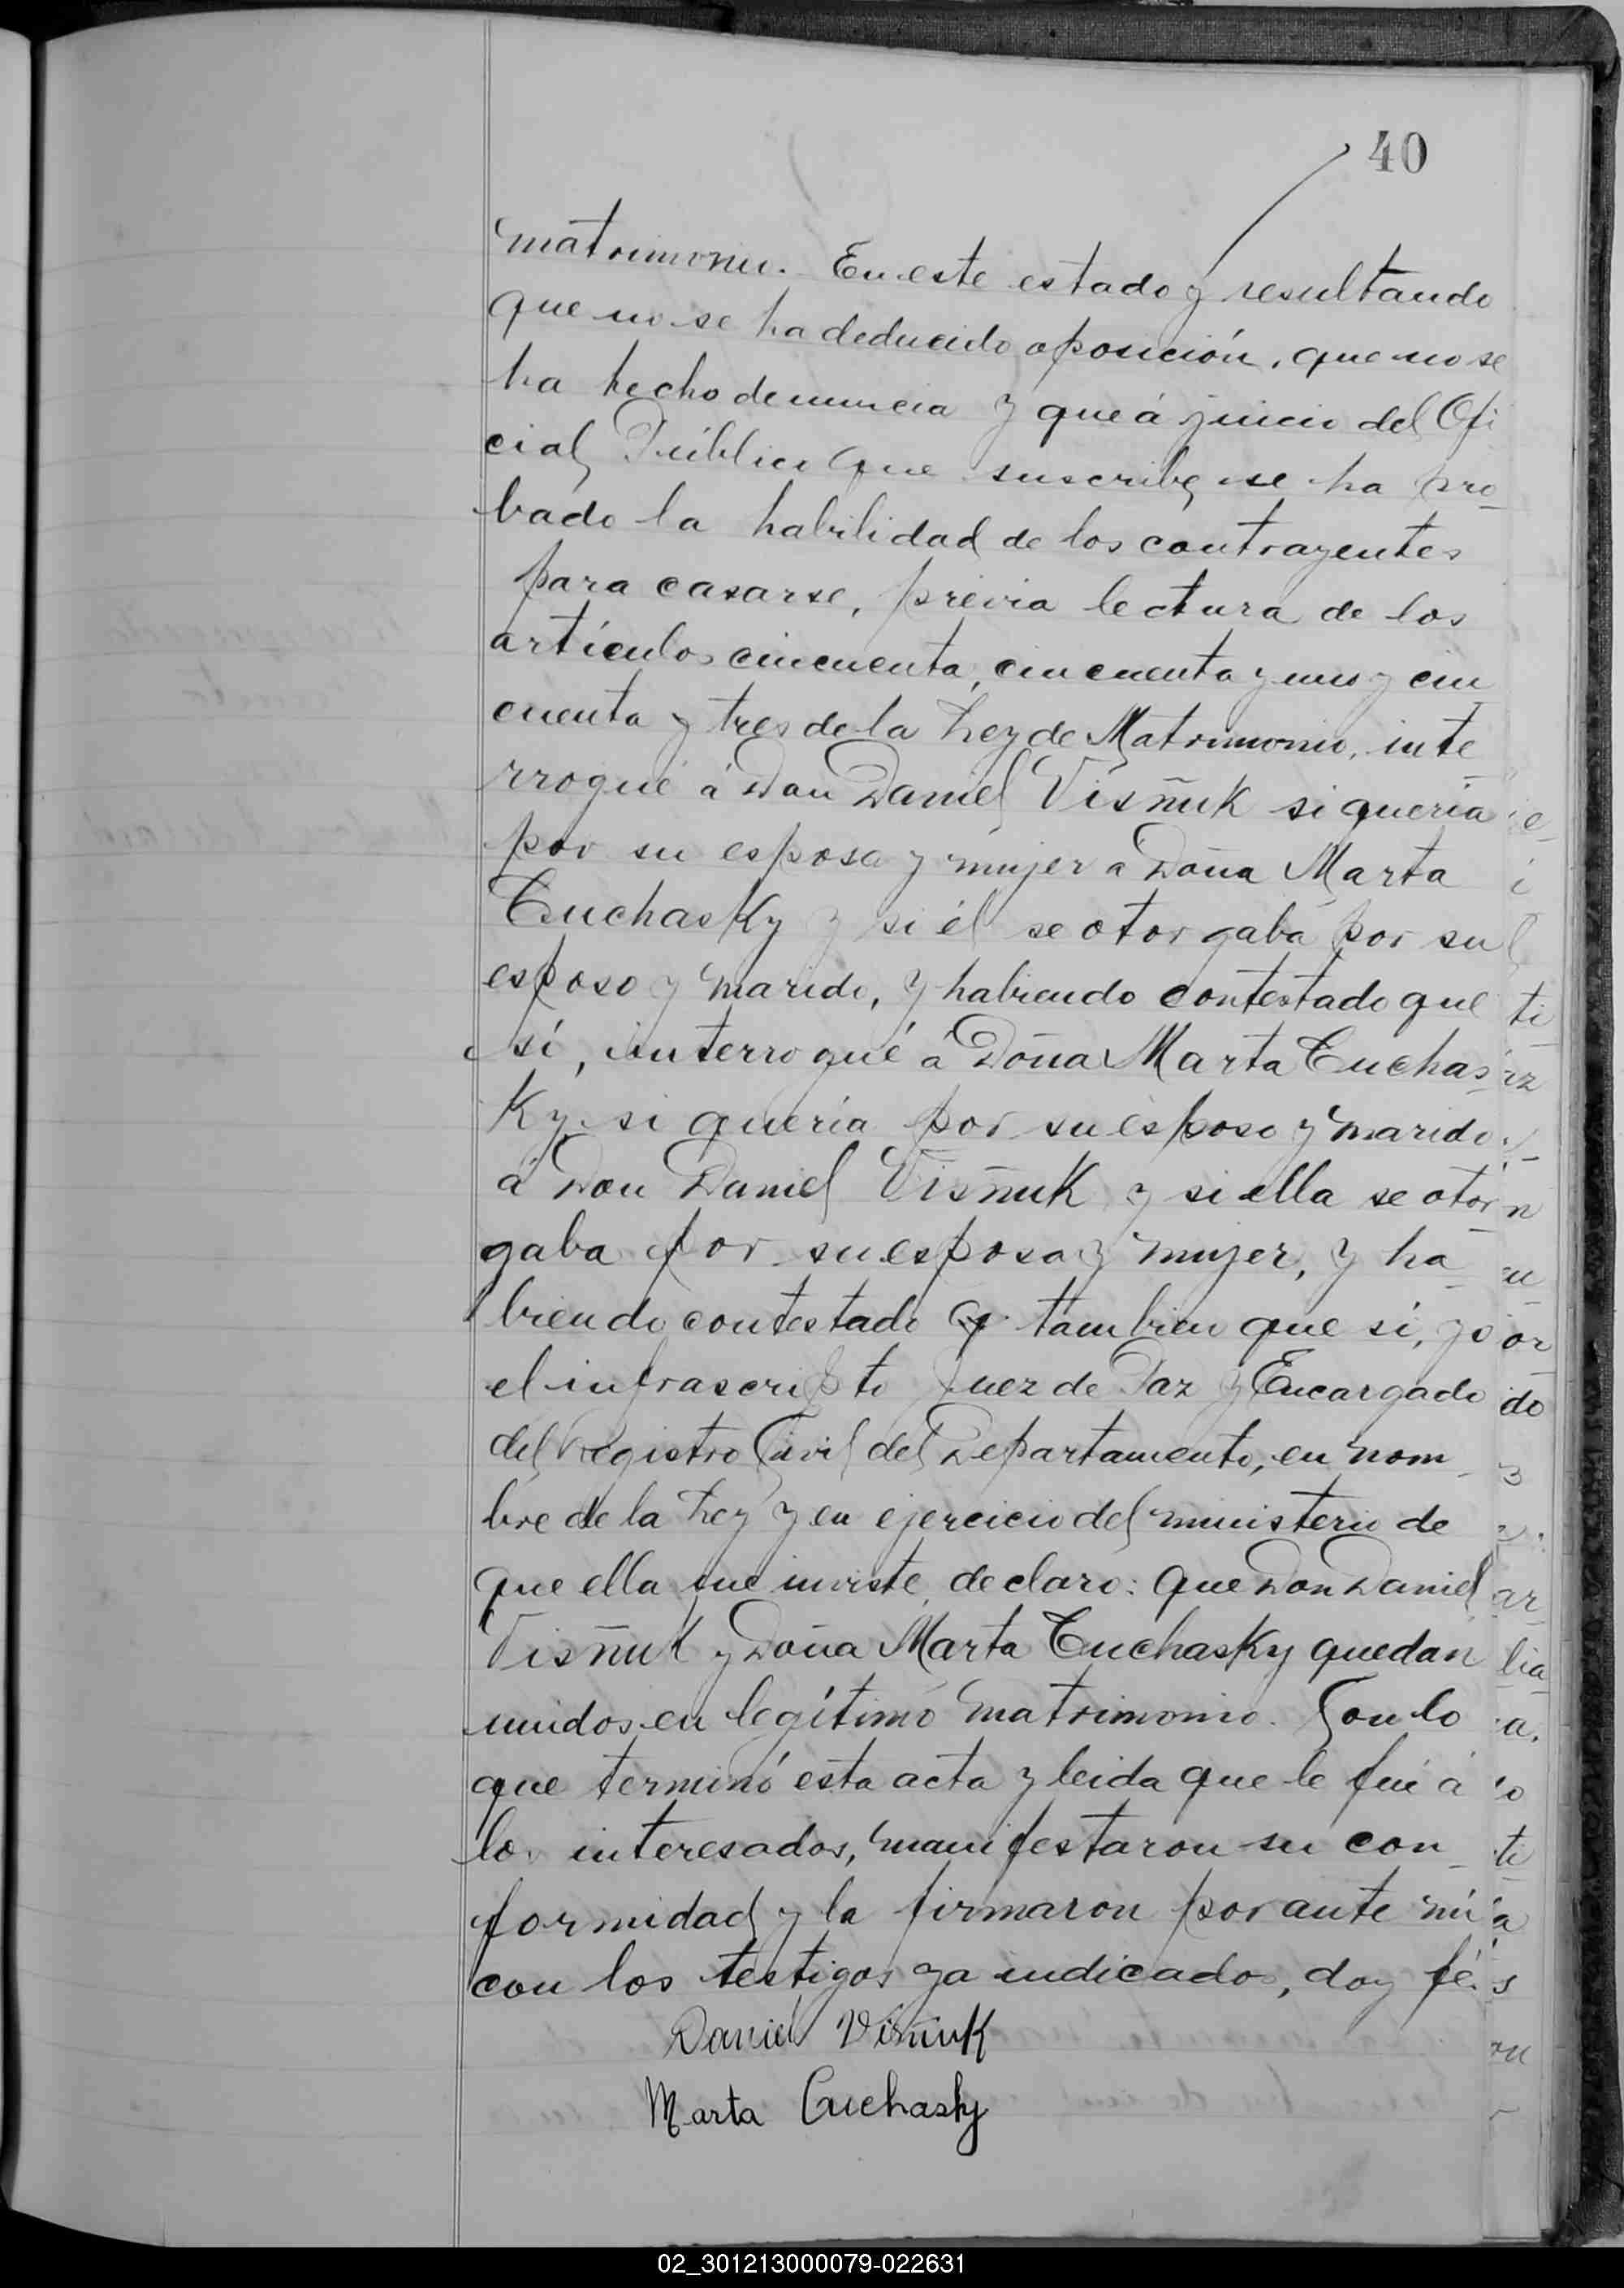 40
matrimonio. En este estado y resultando
que no se ha deducido oposición, que no se
ha hecho denuncia y que á juicio del Ofi
cial Público que suscribe, se ha pro_
bado la habilidad de los contrayentes
para casarse, prévia lectura de los
artículos cincuenta, cincuenta y uno y cin
cuenta y tres de la Ley de Matrimonio, inte_
rrogué á Don Daniel Visñuk si quería
por su esposa y mujer a Doña Marta
Cuchasky y si él se otorgaba por su
esposo y marido, y habiendo contestado que
sí, interrogué á Doña Marta Cuchas
Ky si quería por su esposo y marido
á Don Daniel Visñuk y si ella se otor
gaba por su esposa y mujer, y ha_
biendo contestado tambien que sí, yo
el infrascripto Juez de Paz y Encargado
del Registro Civil del Departamento, en nom_
bre de la Ley y en ejercicio del ministerio de
que ella me inviste, declaro: que Don Daniel
Visñuk y Doña Marta Cuchasky quedan
unidos en legítimo matrimonio. Con lo
que terminó esta acta y leida que le fué á
los interesados, manifestaron su con_
formidad y la firmaron por ante mí
con los testigos ya indicados, doy fé.
Daniel Visñuk
Marta Cuchasky
02_301213000079-022631